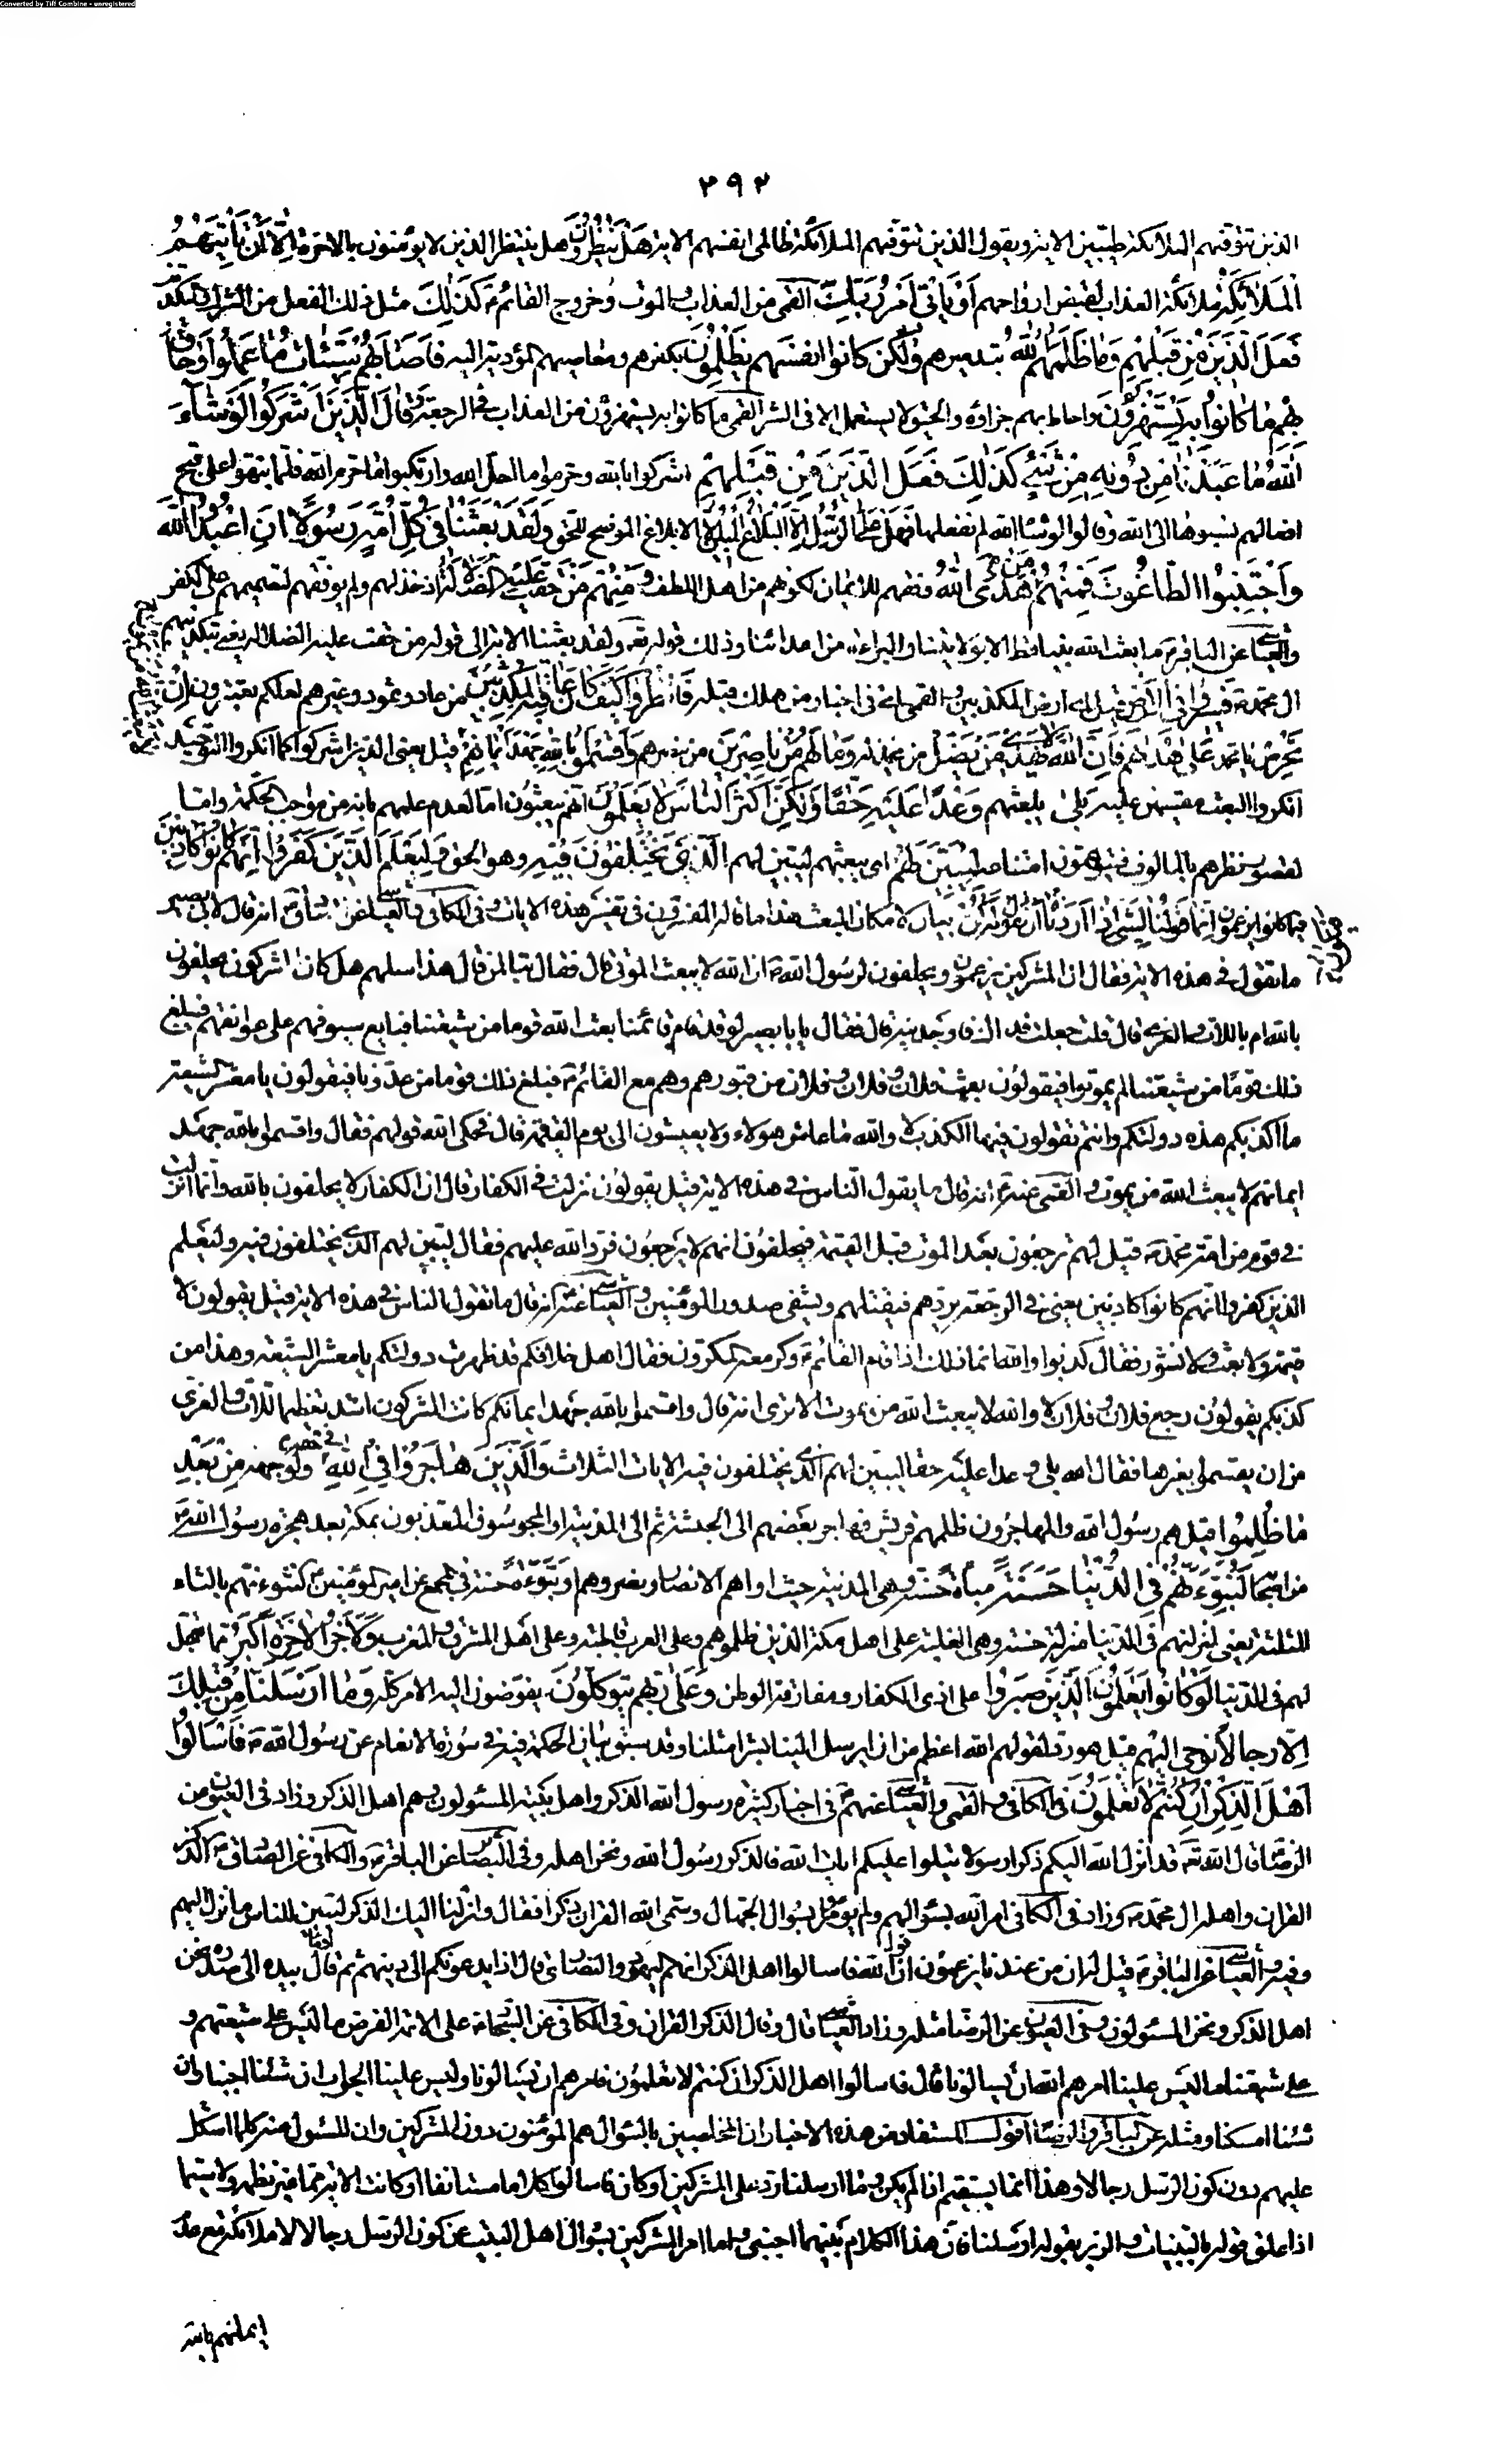 Converted by Tiff Combine - unregistered
٢٩٢
الذين تتوفّيهم الملائكة طيّبين الاية ويقول الذين تتوفّيهم الملائكة ظالمى انفسهم الاية هَلْ يَنْظُرُونَ هل ينتظر الذين لا يؤمنون بالاخرة اِلَّا اَنْ تَأْتِيَهُمُ
الْمَلَائِكَةُ ملائكة العذاب لقبض ارواحهم اَوْ يَأْتِيَ اَمْرُ رَبِّكَ القمى من العذاب والموت وخروج القائم كَذٰلِكَ مثل ذلك الفعل من الشرك والتكذيب
فَعَلَ الَّذِينَ مِنْ قَبْلِهِمْ وَمَا ظَلَمَهُمُ اللهُ بتدميرهم وَلٰكِنْ كَانُوا اَنْفُسَهُمْ يَظْلِمُونَ بكفرهم ومعاصيهم المؤدية اليه فَاَصَابَهُمْ سَيِّئَاتُ مَا عَمِلُوا وَحَاقَ
بِهِمْ مَا كَانُوا بِهِ يَسْتَهْزِؤُنَ واحاط بهم جزاؤه والحيق لا يستعمل الا فى الشر القمى ما كانوا به يستهزؤن من العذاب فى الرجعة وَقَالَ الَّذِينَ اَشْرَكُوا لَوْ شَاءَ
اللهُ مَا عَبَدْنَا مِنْ دُونِهِ مِنْ شَيْءٍ كَذٰلِكَ فَعَلَ الَّذِينَ مِنْ قَبْلِهِمْ اشركوا بالله وحرموا ما احل الله وارتكبوا ما حرم الله فلما نبهوا على قبح
افعالهم نسبوها الى الله وقالوا لو شاء الله لم نفعلها فَهَلْ عَلَى الرُّسُلِ اِلَّا الْبَلَاغُ الْمُبِينُ الا البلاغ الموضح للحق وَلَقَدْ بَعَثْنَا فِي كُلِّ اُمَّةٍ رَسُولًا اَنِ اعْبُدُوا اللهَ
وَاجْتَنِبُوا الطَّاغُوتَ فَمِنْهُمْ مَنْ هَدَى اللهُ وفقهم للايمان لكونهم من اهل اللطف وَمِنْهُمْ مَنْ حَقَّتْ عَلَيْهِ الضَّلَالَةُ اذ خذلهم ولم يوفقهم لتصميمهم على الكفر
والعياشى عن الباقر ما بعث الله نبيا قط الا بولايتنا والبراءة من اعدائنا وذلك قوله تعالى ولقد بعثنا الاية الى قوله من حقت عليه الضلالة يعنى بتكذيبهم
ال محمد فَسِيرُوا فِي الْاَرْضِ قيل اى ارض المكذبين والقمى اى فى اخبار من هلك قبله فَانْظُرُوا كَيْفَ كَانَ عَاقِبَةُ الْمُكَذِّبِينَ من عاد وثمود وغيرهم لعلكم تعتبرون اِنْ
تَحْرِصْ يا محمد عَلَى هُدَاهُمْ فَاِنَّ اللهَ لَا يَهْدِي مَنْ يُضِلُّ من يخذله وَمَا لَهُمْ مِنْ نَاصِرِينَ من ينصرهم وَاَقْسَمُوا بِاللهِ جَهْدَ اَيْمَانِهِمْ قيل يعنى الذين اشركوا كما انكروا التوحيد
انكروا البعث مقسمين عليه بَلٰى يبعثهم وَعْدًا عَلَيْهِ حَقًّا وَلٰكِنَّ اَكْثَرَ النَّاسِ لَا يَعْلَمُونَ انهم يبعثون اما لعدم علمهم بانه من مواجب الحكمة واما
لقصور نظرهم بالمالوف فيتوهمون امتناعه لِيُبَيِّنَ لَهُمُ اى يبعثهم ليبين لهم الَّذِي يَخْتَلِفُونَ فِيهِ وهو الحق وَلِيَعْلَمَ الَّذِينَ كَفَرُوا اَنَّهُمْ كَانُوا كَاذِبِينَ
فيما كانوا يزعمون اِنَّمَا قَوْلُنَا لِشَيْءٍ اِذَا اَرَدْنَاهُ اَنْ نَقُولَ لَهُ كُنْ فَيَكُونُ بيان لامكان البعث هذا ما قاله المفسرون فى تفسير هذه الايات وفى الكافى والعياشى عن الصادق انه قال لابى بصير
ما تقول فى هذه الاية فقال ان المشركين يزعمون ويحلفون لرسول الله ان الله لا يبعث الموتى قال فقال تبا لمن قال هذا سلهم هل كان المشركون يحلفون
بالله ام باللات والعزى قال قلت جعلت فداك فاوجدنيه قال فقال يا بابصير لو قد قام قائمنا بعث الله قوما من شيعتنا قبايع سيوفهم على عواتقهم فيبلغ
ذلك قوما من شيعتنا لم يموتوا فيقولون بعث فلان وفلان وفلان من قبورهم وهم مع القائم فيبلغ ذلك قوما من عدونا فيقولون يا معشر الشيعة
ما اكذبكم هذه دولتكم وانتم تقولون فيها الكذب لا والله ما عاش هؤلاء ولا يعيشون الى يوم القيمة قال فحكى الله قولهم فقال واقسموا بالله جهد
ايمانهم لا يبعث الله من يموت والقمى عنه انه قال ما يقول الناس فى هذه الاية قيل يقولون نزلت فى الكفار قال ان الكفار لا يحلفون بالله وانما انزلت
فى قوم من امة محمد قيل لهم ترجعون بعد الموت قبل القيمة فيحلفون انهم لا يرجعون فرد الله عليهم فقال ليبين لهم الذى يختلفون فيه وليعلم
الذين كفروا انهم كانوا كاذبين يعنى فى الرجعة يردهم فيقتلهم ويشفى صدور المؤمنين والعياشى عنه انه قال ما تقول الناس فى هذه الاية قيل يقولون لا
قيمة ولا بعث ولا نشور فقال كذبوا والله انما ذلك اذا قام القائم وكر معه المكرون فقال اهل خلافكم قد ظهرت دولتكم يا معشر الشيعة وهذا من
كذبكم يقولون رجع فلان وفلان لا والله لا يبعث الله من يموت الا ترى انه قال واقسموا بالله جهد ايمانهم كانت المشركون اشد تعظيما للات والعزى
من ان يقسموا بغيرها فقال الله بلى وعدا عليه حقا ليبين لهم الذى يختلفون فيه الايات الثلاث وَالَّذِينَ هَاجَرُوا فِي اللهِ فى حقه ولوجهه مِنْ بَعْدِ
مَا ظُلِمُوا قيل هم رسول الله والمهاجرون ظلمهم قريش فهاجر بعضهم الى الحبشة ثم الى المدينة او المحبوسون المعذبون بمكة بعد هجرة رسول الله
من اصحابه لَنُبَوِّئَنَّهُمْ فِي الدُّنْيَا حَسَنَةً مباءة حسنة وهى المدينة حيث اواهم الانصار ونصروهم او تبوءة حسنة فى المجمع عن امير المؤمنين لنثوينهم بالثاء
المثلثة يعنى لننزلنهم فى الدنيا منزلة حسنة وهى الغلبة على اهل مكة الذين ظلموهم وعلى العرب قاطبة وعلى اهل المشرق والمغرب وَلَاَجْرُ الْاٰخِرَةِ اَكْبَرُ مما تعجل
لهم فى الدنيا لَوْ كَانُوا يَعْلَمُونَ اَلَّذِينَ صَبَرُوا على اذى الكفار ومفارقة الوطن وَعَلَى رَبِّهِمْ يَتَوَكَّلُونَ يفوضون اليه الامر كله وَمَا اَرْسَلْنَا مِنْ قَبْلِكَ
اِلَّا رِجَالًا نُوحِي اِلَيْهِمْ قيل هو رد لقولهم الله اعظم من ان يرسل الينا بشرا مثلنا وقد سبق بيان الحكمة فيه فى سورة الانعام عن رسول الله فَاسْأَلُوا
اَهْلَ الذِّكْرِ اِنْ كُنْتُمْ لَا تَعْلَمُونَ فى الكافى والقمى والعياشى عنهم فى اخبار كثيرة رسول الله الذكر واهل بيته المسئولون وهم اهل الذكر وزاد فى العيون عن
الرضا قال الله تعالى قد انزل الله اليكم ذكرا رسولا يتلوا عليكم ايات الله فالذكر رسول الله ونحن اهله وفى البصائر عن الباقر والكافى عن الصادق الذكر
القران واهله ال محمد وزاد فى الكافى امر الله بسئوالهم ولم يؤمروا بسؤال الجهال وسمى الله القران ذكرا فقال وانزلنا اليك الذكر لتبين للناس ما نزل اليهم
وفيه والعياشى عن الباقر قيل له ان من عندنا يزعمون ان قول الله فاسالوا اهل الذكر انهم اليهود والنصارى قال اذا يدعونكم الى دينهم ثم قال بيده الى صدره نحن
اهل الذكر ونحن المسئولون وفى العيون عن الرضا مثله وزاد العياشى قال وقال الذكر القران وفى الكافى عن السجاد على الائمة من الفرض ما ليس على شيعتهم و
على شيعتنا ما ليس علينا امرهم الله ان يسالونا قال فاسالوا اهل الذكر ان كنتم لا تعلمون فامرهم ان يسالونا وليس علينا الجواب ان شئنا اجبنا وان
شئنا امسكنا ومثله عن الباقر والرضا اقول المستفاد من هذه الاخبار ان المخاطبين بالسؤال هم المؤمنون دون المشركين وان المسئول عنه كلما اشكل
عليهم دون كون الرسل رجالا وهذا انما يستقيم اذا لم يكن وما ارسلنا ردا على المشركين او كان فاسالوا كلاما مستانفا او كانت الاية مما غير نظمه ولا سيما
اذا علق قوله بالبينات والزبر بقوله ارسلنا فان هذا الكلام بينهما اجنبى واما امر المشركين بسؤال اهل البيت عن كون الرسل رجالا لا ملائكة مع عدم
ايمانهم بالله